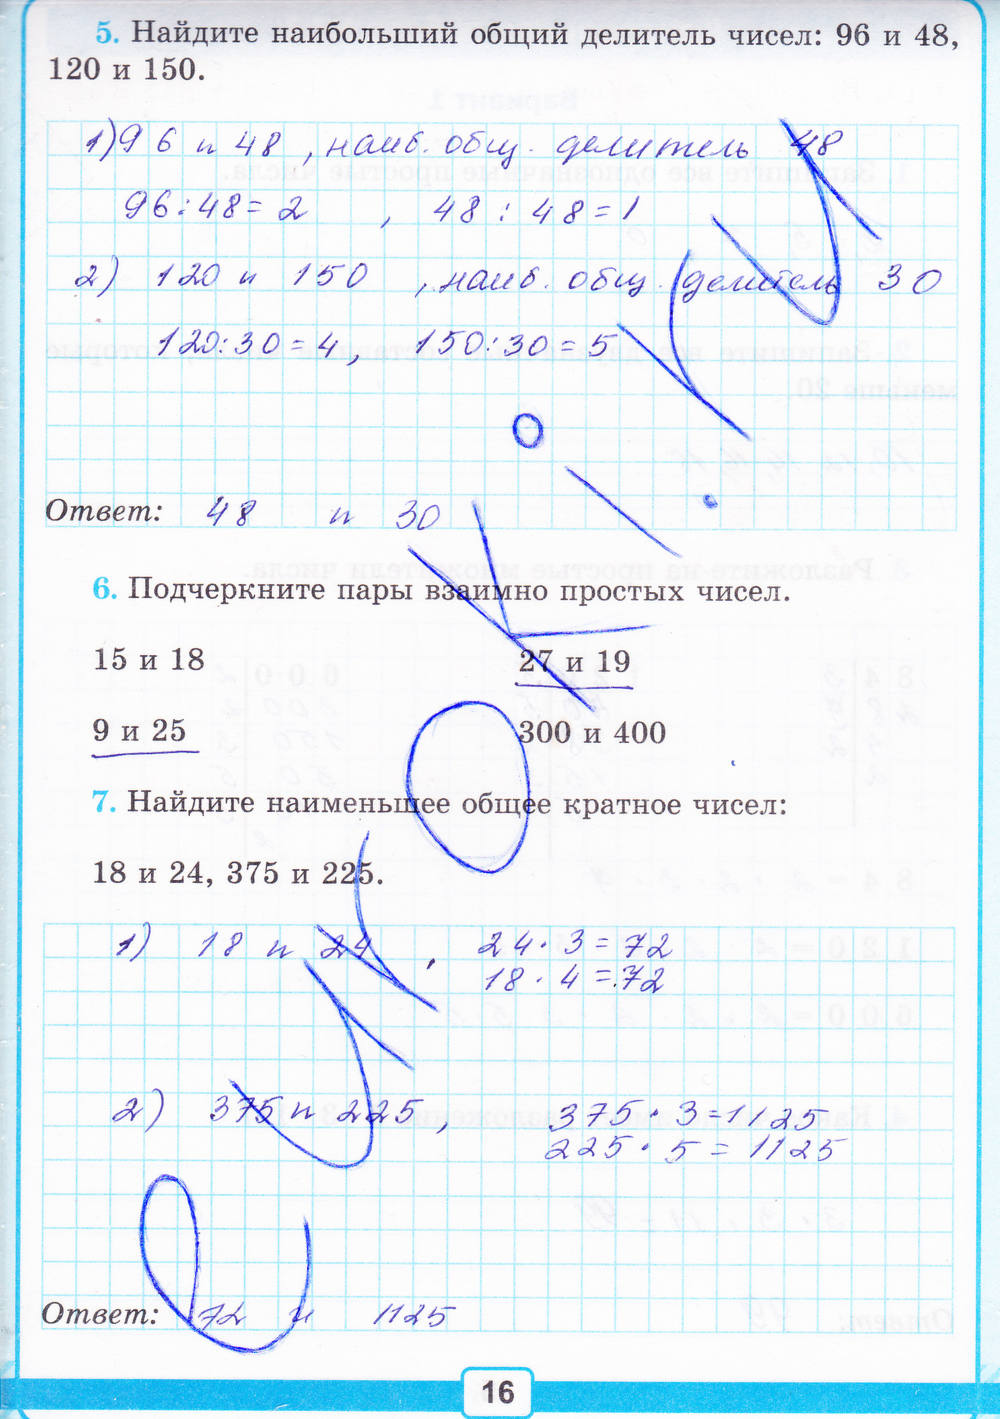 5. Найдите наибольший общий делитель чисел: 96 и 48,
120 и 150.
1) 96 и 48, наиб. общ. делитель 48
96 : 48 = 2 , 48 : 48 = 1
2) 120 и 150 , наиб. общ. делитель 30
120 : 30 = 4, 150 : 30 = 5
Ответ: 48 и 30
6. Подчеркните пары взаимно простых чисел.
15 и 18 27 и 19
9 и 25 300 и 400
7. Найдите наименьшее общее кратное чисел:
18 и 24, 375 и 225.
1) 18 и 24, 24 · 3 = 72
18 · 4 = 72
2) 375 и 225, 375 · 3 = 1125
225 · 5 = 1125
Ответ: 72 и 1125
16